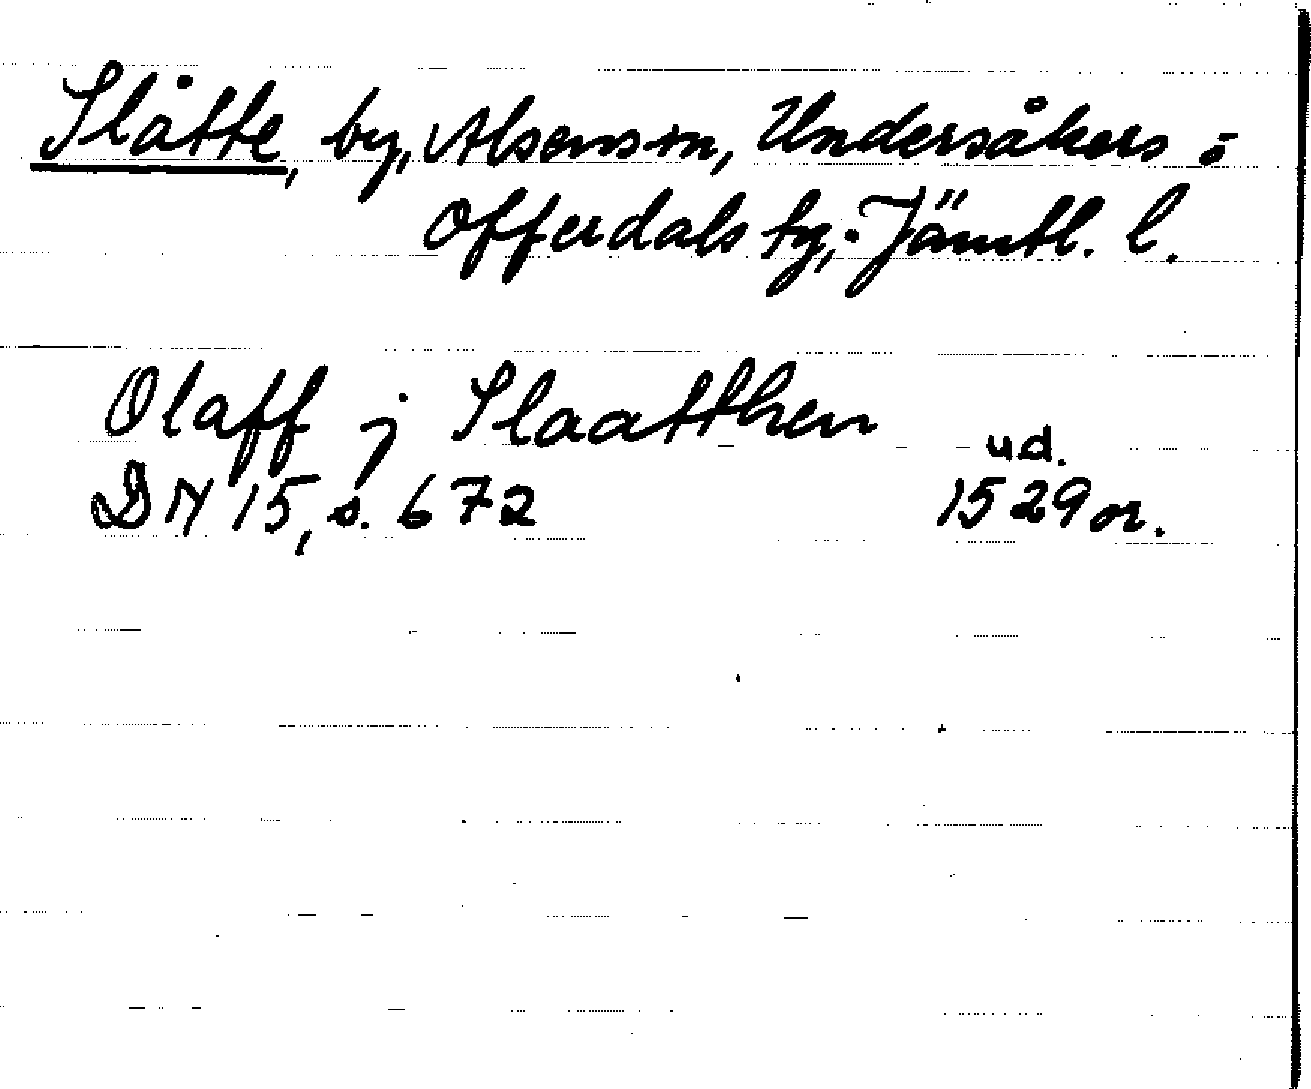 Slåtte, by, Alsens sn, Undersåkers o
Offerdals tg, Jämtl. l.
Olaff j Slaatthen
u.d.
DN 15, s. 672 1529 or.